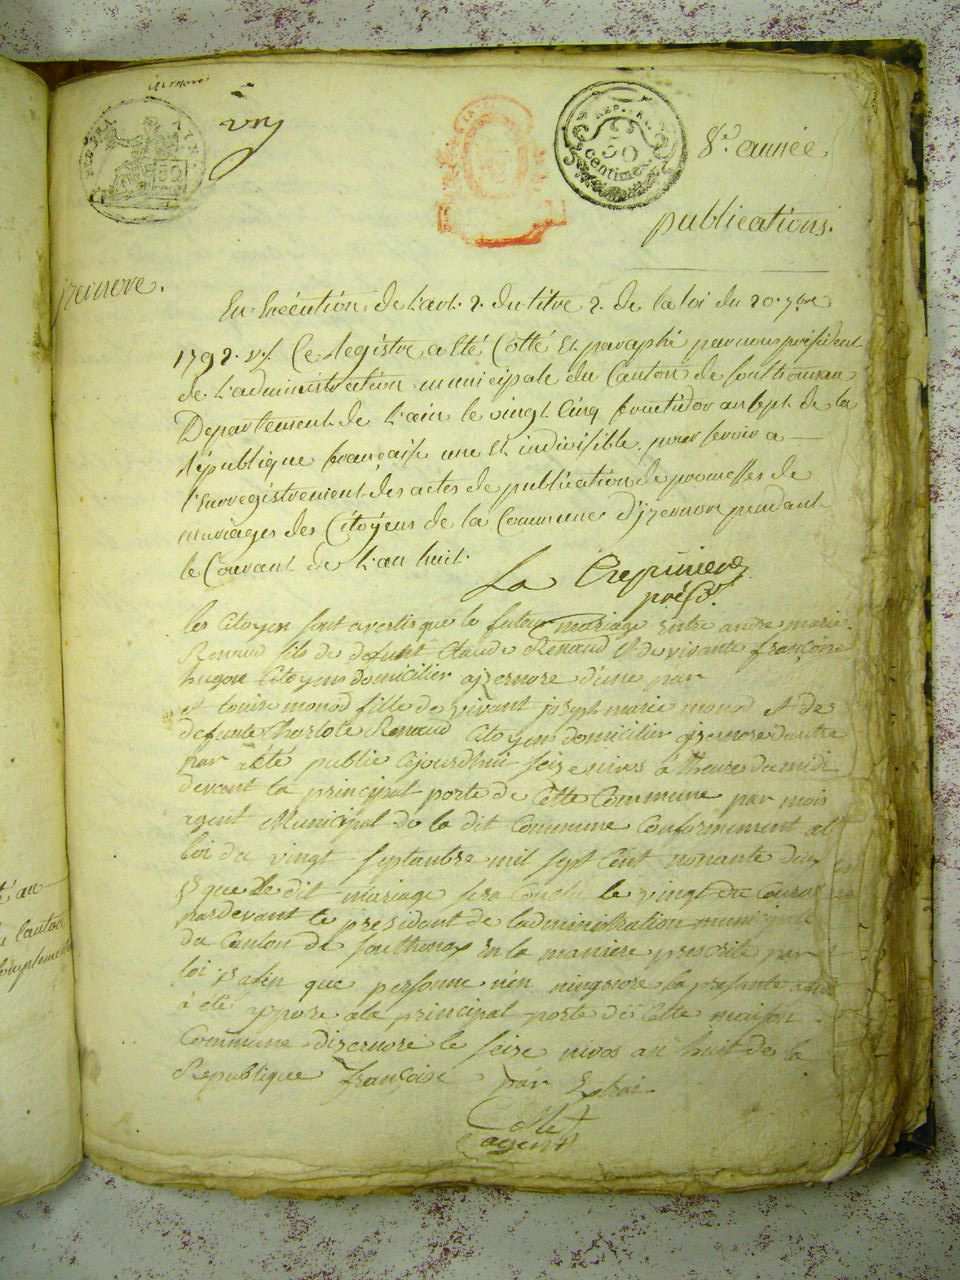 8e. année
50
centimes
publications.
izernore.
En Exécution de L'art. 2. du titre 2. de la loi du 20. 7bre
1792. v.s. Ce Registre a Eté Cotté Et paraphé par nous président
de L'administration municipale du Canton de Sonthonnax
Département de L'ain le vingt Cinq fructidor an sept de la
République française une Et indivisible. pour servir a
l'Enregistrement des actes de publication de promesses de
mariages des Citoyens de la Commune d'izernore pendant
le Courant de L'an huit.
La Crepiniere
présdt.
les Citoyen sont avertis que le futeur mariage Entre andre marie
Renaud fils de defunt Claude Renaud Et de vivante françoise
hugon Citoyens domicilier a izernore d'une par
et louise monod fille de vivant joseph marie monod Et de
defunte Charlote Renaud Citoyens domicilier izernore d'autre
par a été publie Cejourdhui seize nivos a l'heure de midi
devant la principal porte de Cette Commune par mois
agent Municipal de la dit Commune Conformement al
loi du vingt Septambre mil sept Cent nonante deux
Et que le dit mariage sera le vingt du Courant
pardevant le president de ladministration municipale
du Canton de Sonthonax En la maniere prescrite par
loi Et afin que personne n'en la presente acte
a été appose ala principal porte de Cette maison
Commune dizernore le seize nivos an huit de la
Republique françoise par Extrai
agent